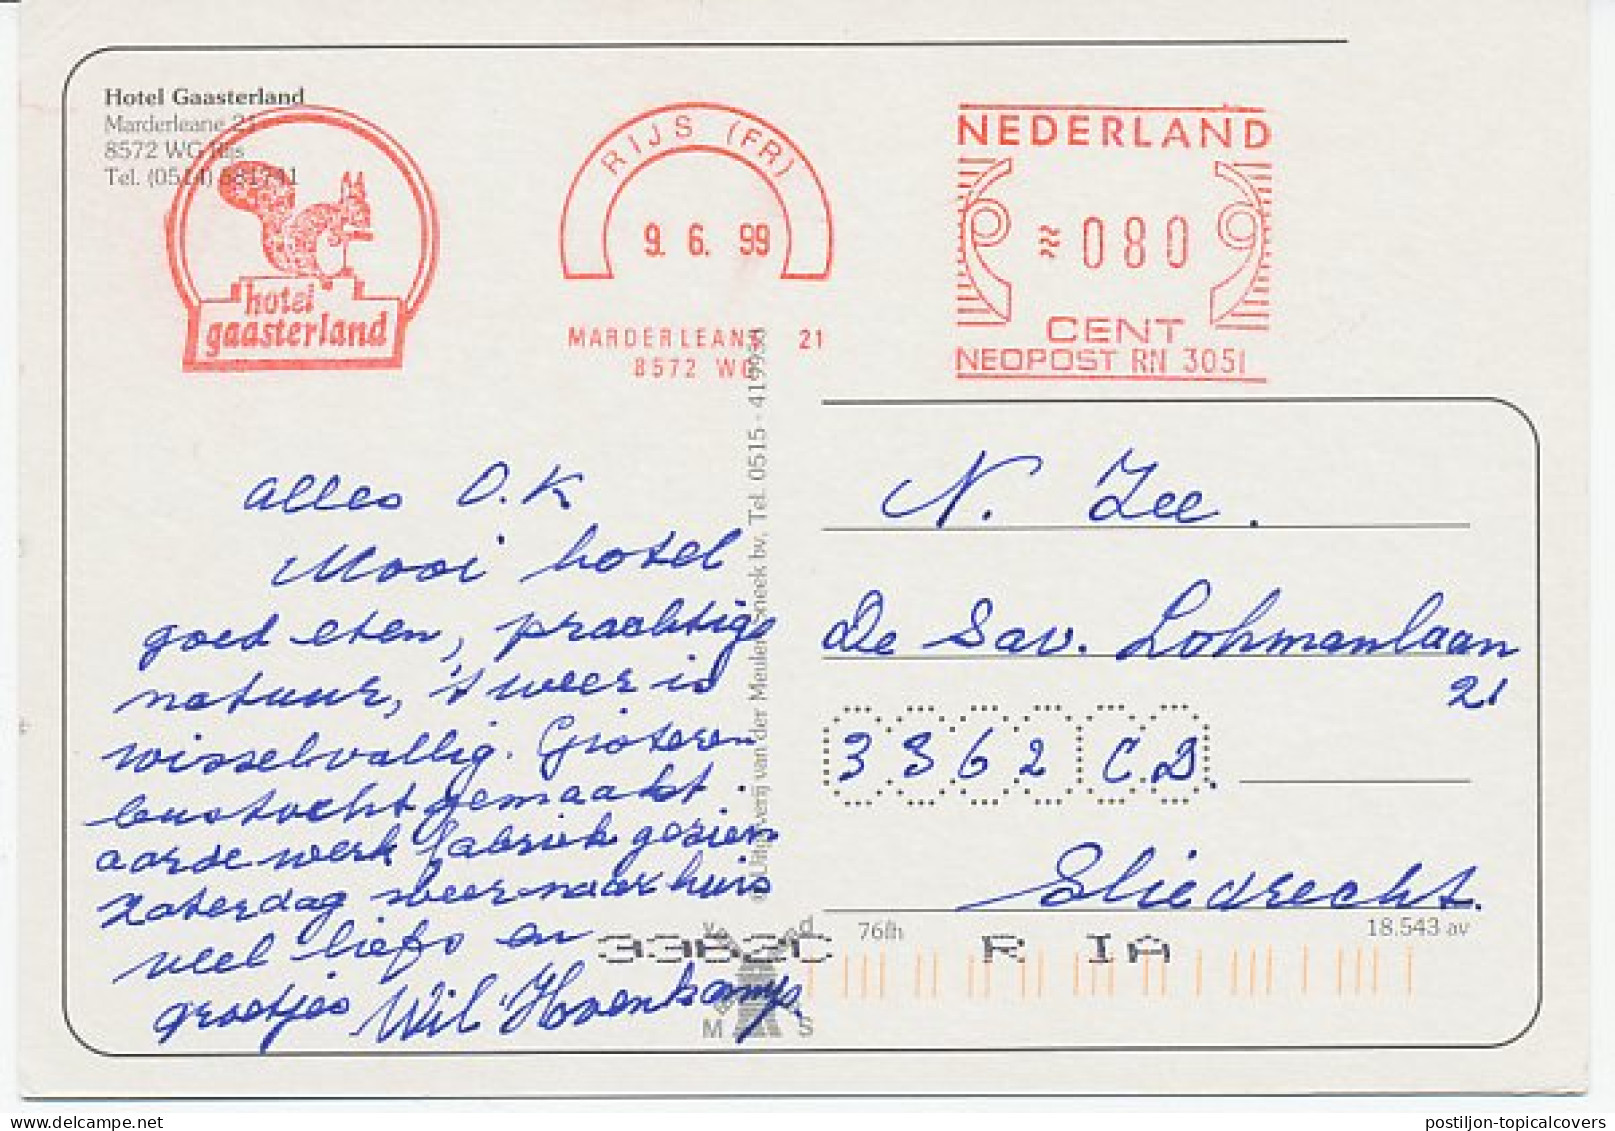 Hotel Gaasterland
Marderleane 21
8572 WG Rijs
Tel. (0514) 581741
hotel
gaasterland
RIJS (FR)
9. 6. 99
MARDERLEANE 21
8572 WG
NEDERLAND
≈080
CENT
NEOPOST RN 3051
Alles O.K
Mooi hotel
goed eten, prachtige
natuur, 't weer is
wisselvallig. Gisteren
bustocht gemaakt.
aardewerk fabriek gezien
Zaterdag weer naar huis
veel liefs en
groetjes Wil Hoenkamp
© Uitgeverij van der Meulen-Sneek bv, Tel. 0515 -
N. Zee.
De Sav. Lohmanlaan
21
3362 CD.
Sliedrecht.
76/h
18.543 av
M S
R IA
postiljon-topicalcovers